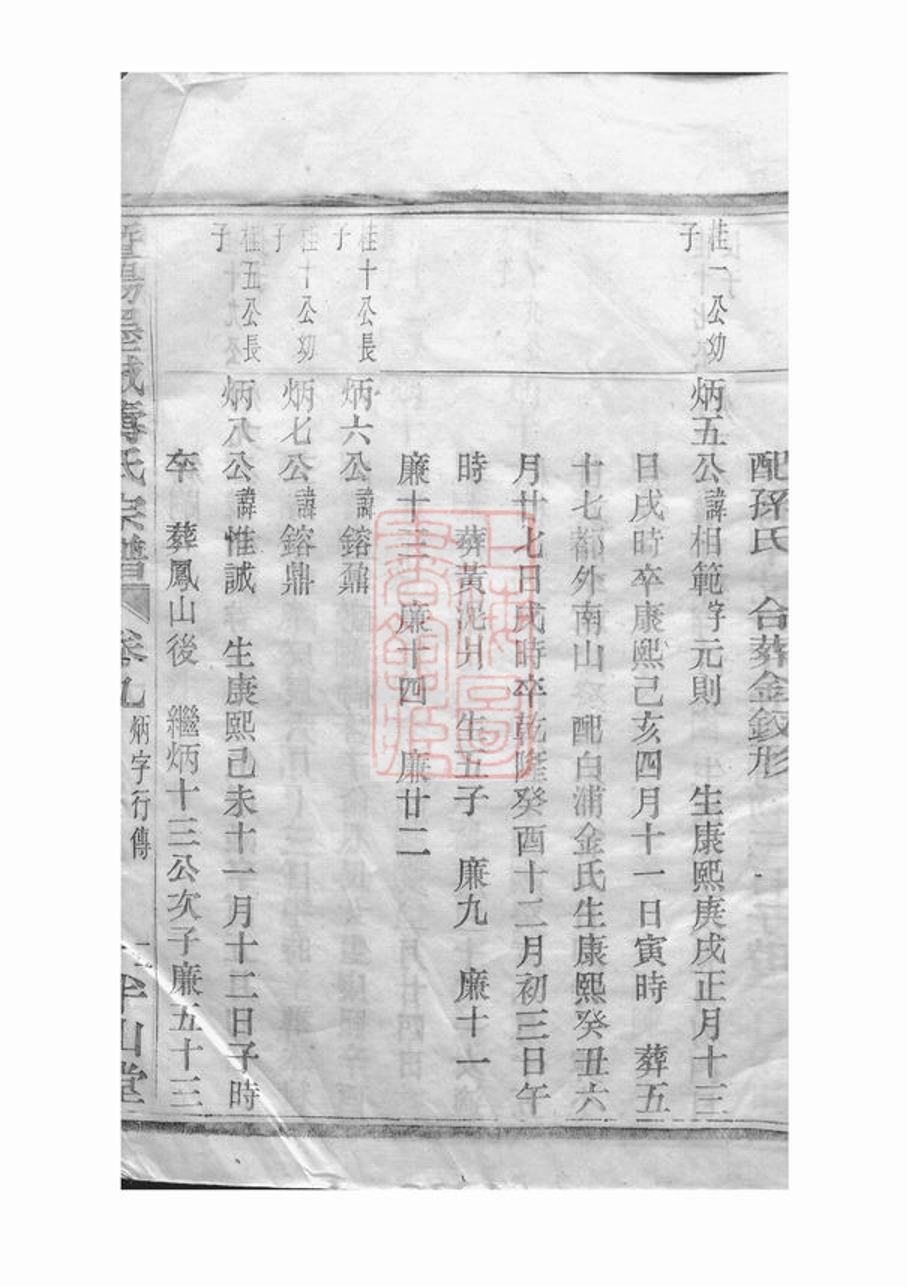 配孫氏　合葬金釵形
桂一公幼子
炳五公諱相範字元則　生康熙庚戌正月十三
日戌時卒康熙己亥四月十一日寅時　葬五
十七都外南山　配白浦金氏生康熙癸丑六
月廿七日戌時卒乾隆癸酉十二月初三日午
時　葬黃泥爿　生五子　廉九　廉十一
廉十三　廉十四　廉廿二
桂十公長子
炳六公諱鎔鼐
桂十公幼子
炳七公諱鎔鼎
桂五公長子
炳八公諱惟誠　生康熙己未十一月十二日子時
卒　葬鳳山後　繼炳十三公次子廉五十三
暨陽墨城壽氏宗譜　卷九　炳字行傳　半山堂
上海圖書館藏